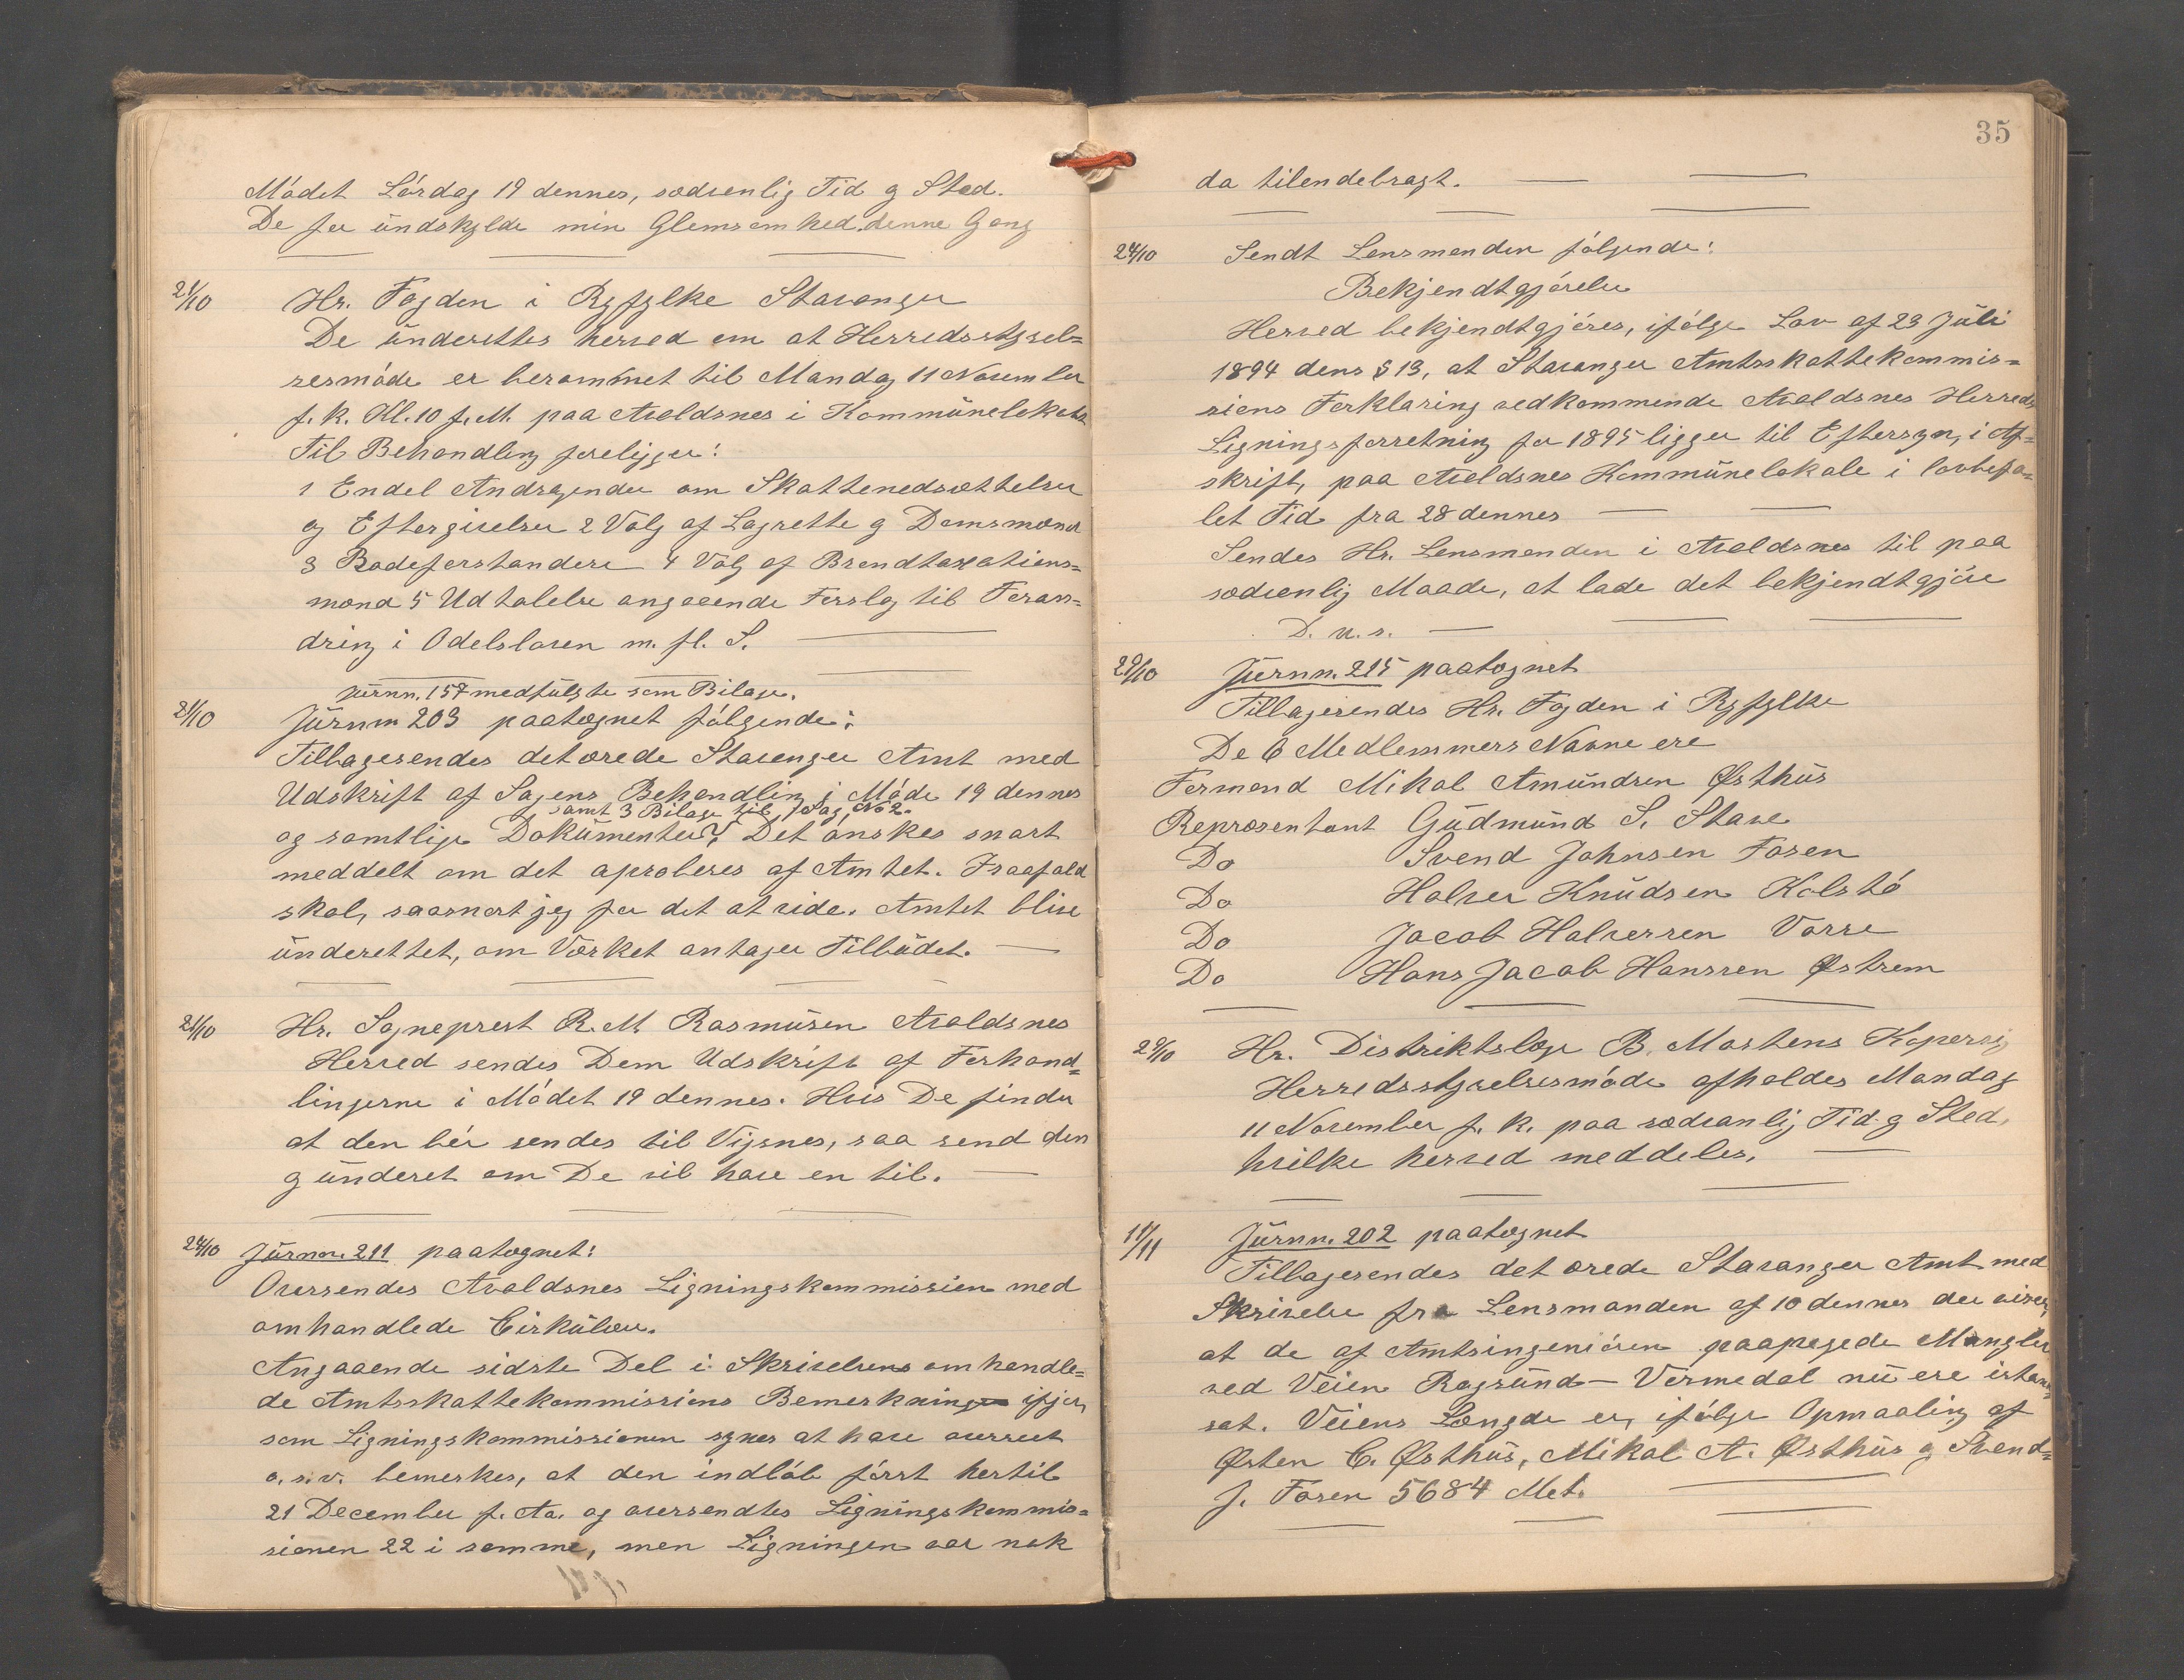 Mödet Lördag 19 dennes, sædvenlig Tid og Sted.
De faa undskylde min Glemsomhed denne Gang
21/10 Hr. Fogden i Ryfylke Stavanger
De underettes herved om at Herredsstyrel=
sesmöde er berammet til Mandag 11 November
f. k. Kl. 10 f. M. paa Avaldsnes i Kommunelokalet
Til Behandling foreligger:
1 Endel Andragender om Skattenedsættelser
og Eftergivelser 2 Valg af Lagrette og Domsmænd
3 Rodeforstandere 4 Valg af Brandtaxations=
mænd 5 Udtalelse angaaende Forslag til Foran=
dring i Odelsloven m. fl. S.
Jurnn. 157 medfulgte som Bilage.
21/10 Jurnn 203 paategnet fölgende:
Tilbagesendes det ærede Stavanger Amt med
Udskrift af Sagens Behandling i Möde 19 dennes
samt 3 Bilage til Sag No 2.
og samtlige Dokumenter. Det önskes snart
meddelt om det aproberes af Amtet. I saafald
skal, saasnart jeg faar det at vide, Amtet blive
underettet, om Værket antager Tilbudet.
21/10 Hr. Sogneprest R. M. Rasmusen Avaldsnes
Herved sendes Dem Udskrift af Forhand=
lingerne i Mödet 19 dennes. Hvis De finder
at den bör sendes til Vigsnes, saa send den
og underet om De vil have en til.
24/10 Jurnn. 211 paategnet:
Oversendes Avaldsnes Ligningskommission med
omhandlede Cirkulære.
Angaaende sidste Del i Skrivelsens omhandle=
de Amtsskattekommissions Bemerkning ifjor,
som Ligningskommissionen synes at have overseet
o. s. v. bemerkes, at den indlöb först hertil
21 December f. Aa. og oversendtes Ligningskommis=
sionen 22 i samme, men Ligningen var nok
35
da tilendebragt.
24/10 Sendt Lensmanden fölgende:
Bekjendtgjörelse
Herved bekjendtgjöres, ifölge Lov af 23 Juli
1894 dens § 13, at Stavanger Amtsskattekommis=
sions Forklaring vedkommende Avaldsnes Herreds
Ligningsforretning for 1895 ligger til Eftersyn, i Af=
skrift, paa Avaldsnes Kommunelokale i lovbefa=
let Tid fra 28 dennes
Sendes Hr. Lensmanden i Avaldsnes til paa
sædvenlig Maade, at lade det bekjendtgjöre
D. u. s.
29/10 Jurnn. 215 paategnet
Tilbagesendes Hr. Fogden i Ryfylke
De 6 Medlemmers Navne ere
Formand Mikal Amundsen Østhus
Representant Gudmund S. Stave
Do Svend Johnsen Fosen
Do Halvor Knudsen Kolstö
Do Jacob Halvorsen Vorre
Do Hans Jacob Hanssen Østrem
29/10 Hr. Distriktslæge B. Martens Kopervig
Herredsstyrelsesmöde afholdes Mandag
11 November f. k. paa sædvanlig Tid og Sted,
hvilke herved meddeles.
11/11 Jurnn. 202 paategnet
Tilbagesendes det ærede Stavanger Amt med
Skrivelse fra Lensmanden af 10 dennes der viser,
at de af Amtsingeniören paapegede Mangler
ved Veien Røgsund – Vormedal nu ere istand=
sat. Veiens Længde er, ifölge Opmaaling af
Østen C. Østhus, Mikal A. Østhus og Svend=
J. Fosen 5684 Met.